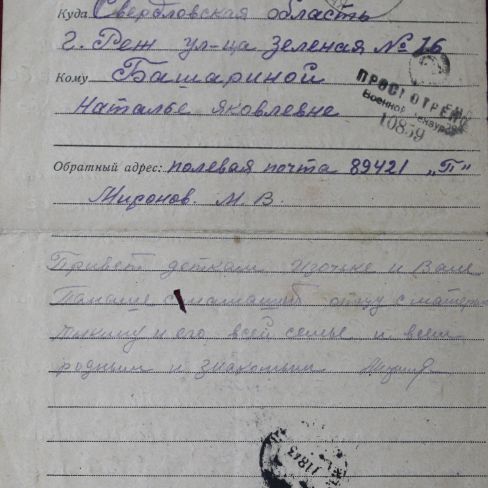 Куда Свердловская область
г. Реж ул-ца Зеленая № 16
Кому Башариной
Наталье Яковлевне
ПРОСМОТРЕНО
Военной Цензурой
10859
Обратный адрес: полевая почта 89421 „П"
Миронов. М. В.
Привет деткам Игочьке и Вале
отцу с матерью
и его всей семье и всем
родным и знакомым